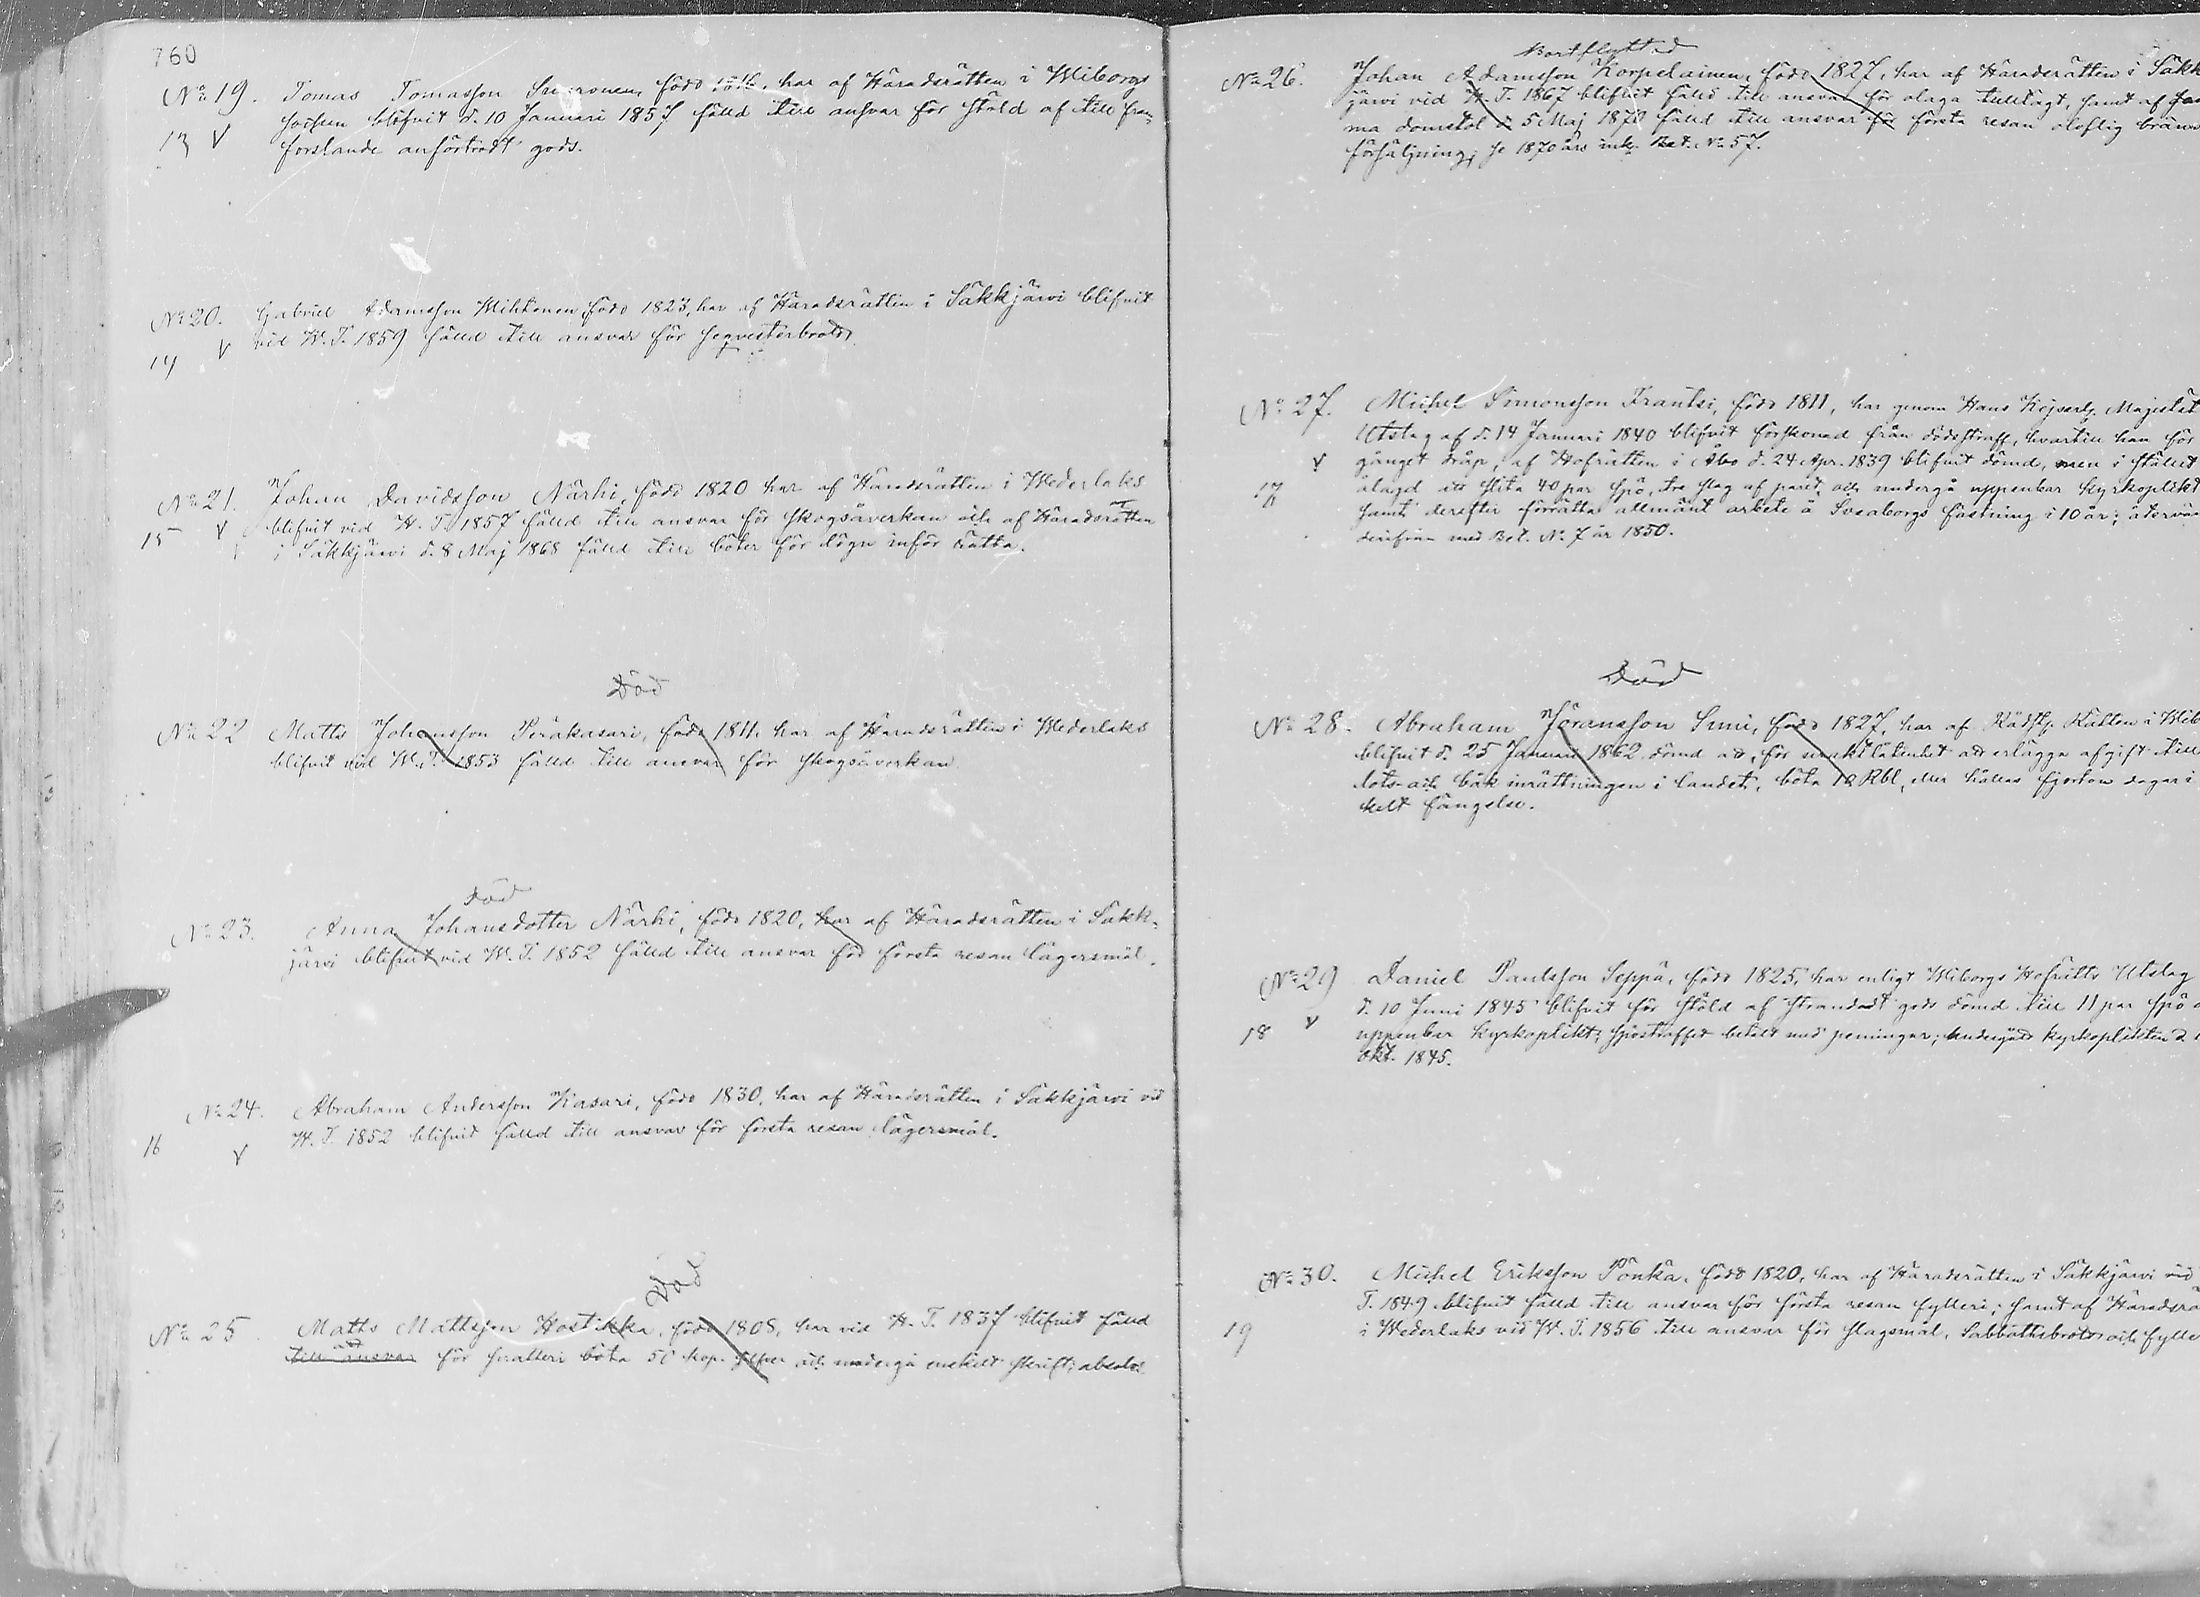 760
No 19. Tomas Tomasson Suuronen, född 1816, har af Häradsrätten i Wiborgs
13 V socken blifvit d. 10 Januari 1857 fälld till ansvar för stöld af till fram-
forslande anförtrodt gods.
No 20. Gabriel Adamsson Mihkonen född 1823, har af Häradsrätten i Säkkjärvi blifvit
14 V vid W. T. 1859 fälld till ansvar för seqvesterbrott.
No 21. Johan Davidsson Närhi, född 1820 har af Häradsrätten i Wederlaks
15 V blifvit vid H. T. 1857 fälld till ansvar för skogsåverkan och af Häradsrätten
i Säkkjärvi d. 8 Maj 1868 fälld till böter för lögn inför Rätta.
Död
No 22 Matts Johansson Peräkasari, född 1811, har af Häradsrätten i Wederlaks
blifvit vid W. T. 1853 fälld till ansvar för skogsåverkan
Död
No 23. Anna Johansdotter Närhi, född 1820, har af Häradsrätten i Säkk-
järvi blifvit vid W. T. 1852 fälld till ansvar för första resan lägersmål.
No 24. Abraham Andersson Kasari, född 1830, har af Häradsrätten i Säkkjärvi vid
16 V W. T. 1852 blifvit fälld till ansvar för första resan lägersmål.
Död
No 25. Matts Mattsson Hostikka, född 1808, har vid H. T. 1837 blifvit fälld
att
till ansvar för snatteri böta 50 kop. silfver och undergå enskilt skrift; absolv.
Bortflyttad
No 26. Johan Adamsson Korpelainen, född 1827, har af Häradsrätten i Säkk
järvi vid H. T. 1867 blifvit fälld till ansvar för olaga tilltagt, samt af sam
ma domstol d 5 Maj 1870 fälld till ansvar för första resan oloflig bränv
försäljning; se 1870 års ink. Bet. No 57.
No 27. Michel Simonsson Frantsi, född 1811, har genom Hans Kejserlg. Majestät
Utslag af d. 14 Januari 1840 blifvit förskonad från dödsstraff, hvartill han för
V gånget dråp, af Hofrätten i Åbo d. 24 Apr. 1839 blifvit dömd, men i stället
17 ålagd att slita 40 par spö, tre slag af paret, och undergå uppenbar kyrkoplikt
samt derefter förrätta allmänt arbete å Sveaborgs fästning i 10 år; återvän
derifrån med Bet. No 7 år 1850.
Död
No 28. Abraham Jöransson Simi, född 1827, har af Rådst. Rätten i Wib
blifvit d. 25 Januari 1862 dömd att, för uraktlåtenhet att erlägga afgift till
lots- och båk inrättningen i landet, böta 10 Rbl, eller hållas fjorton dagar i
kelt fängelse.
No 29 Daniel Paulsson Seppä, född 1825, har enligt Wiborgs Hofrätts Utslag
V d. 10 Juni 1845 blifvit för stöld af strandadt gods dömd till 11 par spö o
18 uppenbar kyrkoplikt; spöstraffet betalt med penningar; undergått kyrkoplikten d
Okt. 1845.
No 30. Michel Eriksson Pönkä, född 1820, har af Häradsrätten i Säkkjärvi vid
T. 1849 blifvit fälld till ansvar för första resan fylleri; samt af Häradsrä
19 i Wederlaks vid W. T. 1856 till ansvar för slagsmål, Sabbathsbrott och fylle